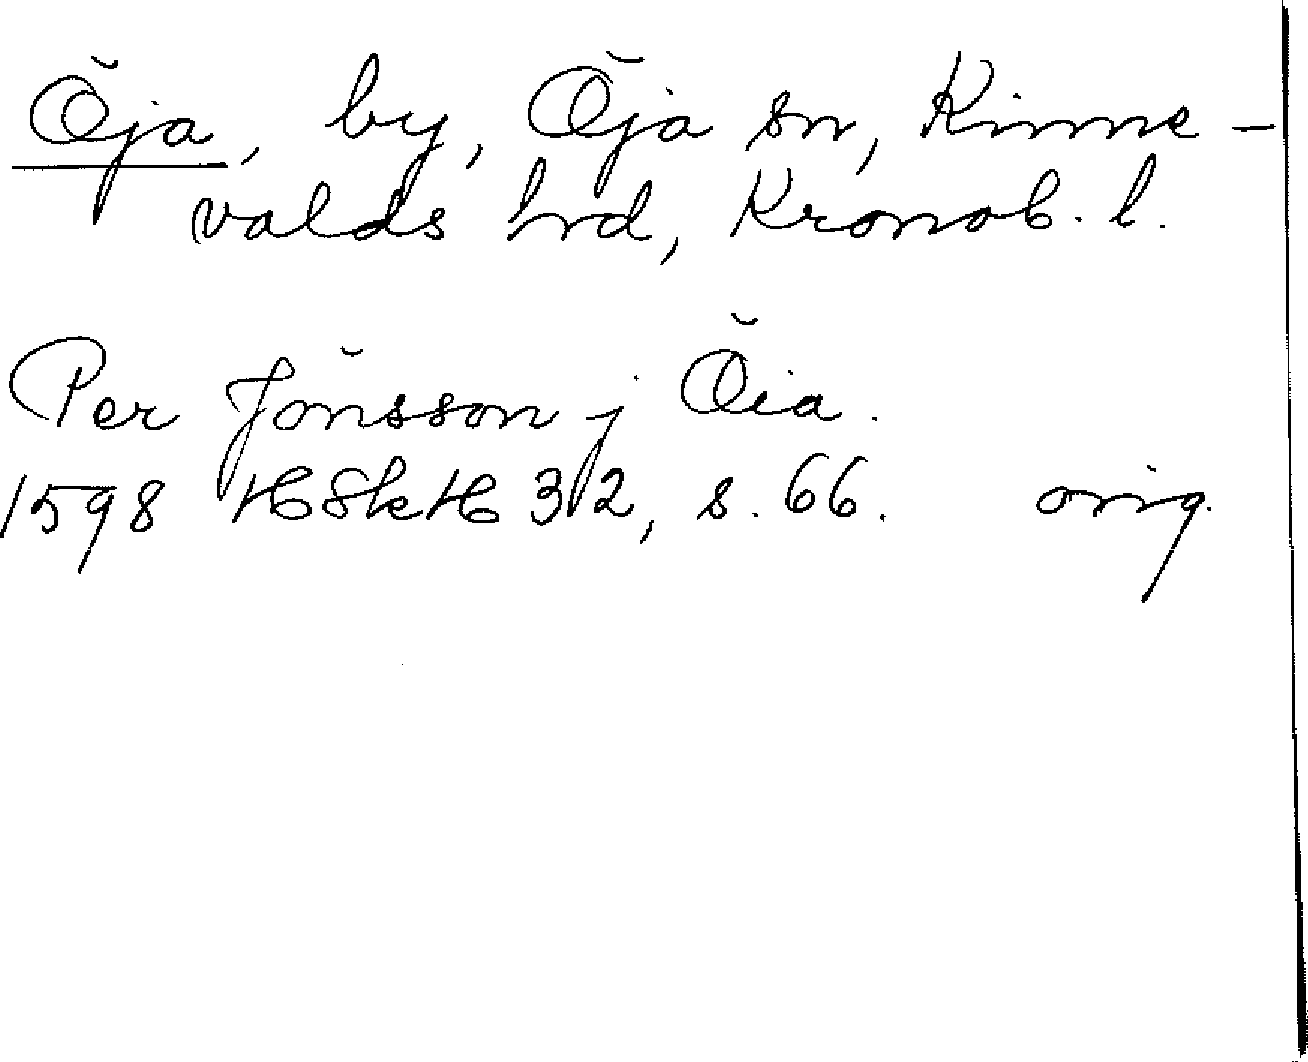 Öja, by, Öja sn, Kinne-
valds hrd, Kronob. l.
Per Jönsson j Öia.
1598 HSkH 32, s. 66. orig.